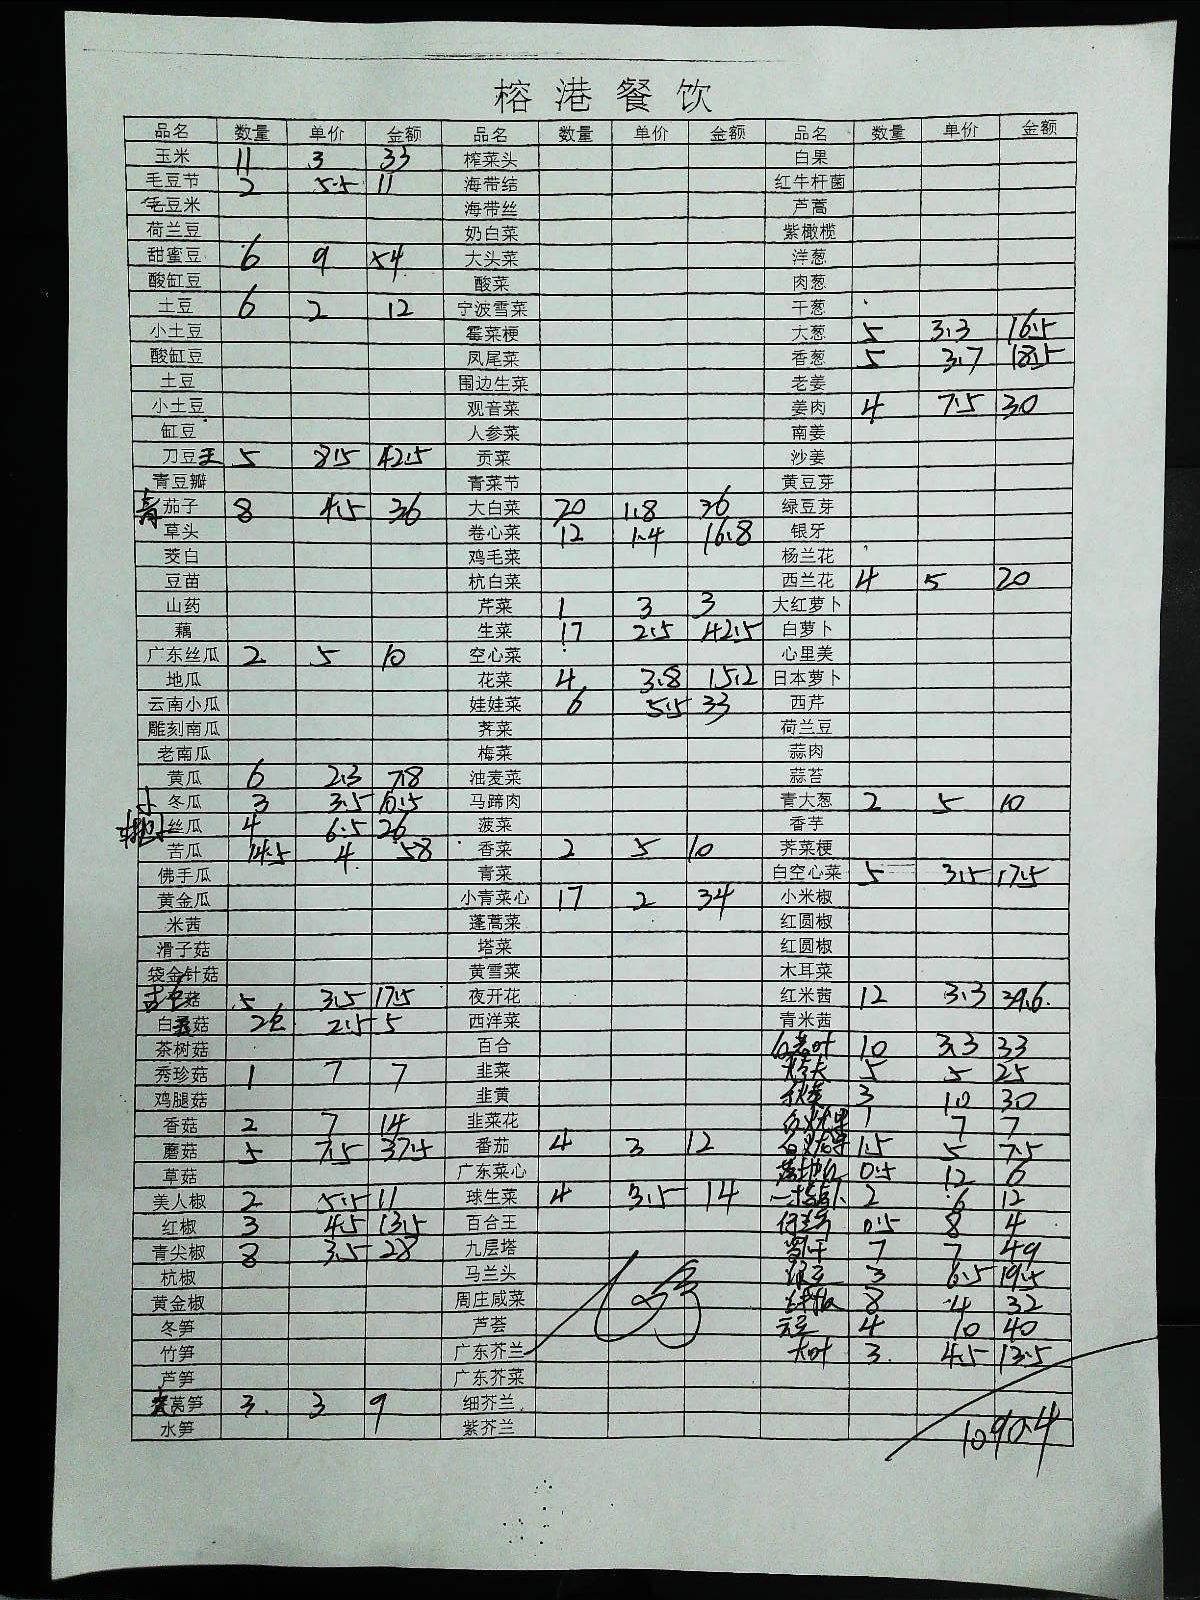 榕港餐饮
品名 数量 单价 金额 品名 数量 单价 金额 品名 数量 单价 金额
玉米 11 3 33 榨菜头 白果
毛豆节 2 5.5 11 海带结 红牛杆菌
毛豆米 海带丝 芦蒿
荷兰豆 奶白菜 紫橄榄
甜蜜豆 6 9 54 大头菜 洋葱
酸缸豆 酸菜 肉葱
土豆 6 2 12 宁波雪菜 干葱
小土豆 霉菜梗 大葱 5 3.3 16.5
酸缸豆 凤尾菜 香葱 5 3.7 18.5
土豆 围边生菜 老姜
小土豆 观音菜 姜肉 4 7.5 30
缸豆 人参菜 南姜
刀豆王 5 8.5 42.5 贡菜 沙姜
青豆瓣 青菜节 黄豆芽
青茄子 8 4.5 36 大白菜 20 1.8 36 绿豆芽
草头 卷心菜 12 1.4 16.8 银牙
茭白 鸡毛菜 杨兰花
豆苗 杭白菜 西兰花 4 5 20
山药 芹菜 1 3 3 大红萝卜
藕 生菜 17 2.5 42.5 白萝卜
广东丝瓜 2 5 10 空心菜 心里美
地瓜 花菜 4 3.8 15.2 日本萝卜
云南小瓜 娃娃菜 6 5.5 33 西芹
雕刻南瓜 荠菜 荷兰豆
老南瓜 梅菜 蒜肉
黄瓜 6 2.3 7.8 油麦菜 蒜苔
小冬瓜 3 3.5 10.5 马蹄肉 青大葱 2 5 10
丝瓜 4 6.5 26 菠菜 香芋
苦瓜 14.5 4 58 香菜 2 5 10 荠菜梗
佛手瓜 青菜 白空心菜 5 3.5 17.5
黄金瓜 小青菜心 17 2 34 小米椒
米茜 蓬蒿菜 红圆椒
滑子菇 塔菜 红圆椒
袋金针菇 黄雪菜 木耳菜
菇 5 3.5 17.5 夜开花 红米茜 12 3.3 39.6
白玉菇 2包 2.5 5 西洋菜 青米茜
茶树菇 百合 10 3.3 33
秀珍菇 1 7 7 韭菜 5 5 25
鸡腿菇 韭黄 3 10 30
香菇 2 7 14 韭菜花 1 7 7
蘑菇 5 7.5 37.5 番茄 4 3 12 1.5 5 7.5
草菇 广东菜心 0.5 12 6
美人椒 2 5.5 11 球生菜 4 3.5 14 2 6 12
红椒 3 4.5 13.5 百合王 0.5 8 4
青尖椒 8 3.5 28 九层塔 7 7 49
杭椒 马兰头 3 6.5 19.5
黄金椒 周庄咸菜 8 4 32
冬笋 芦荟 4 10 40
竹笋 广东芥兰 大叶 3 4.5 13.5
芦笋 广东芥菜
莴笋 3 3 9 细芥兰
水笋 紫芥兰
1090.4